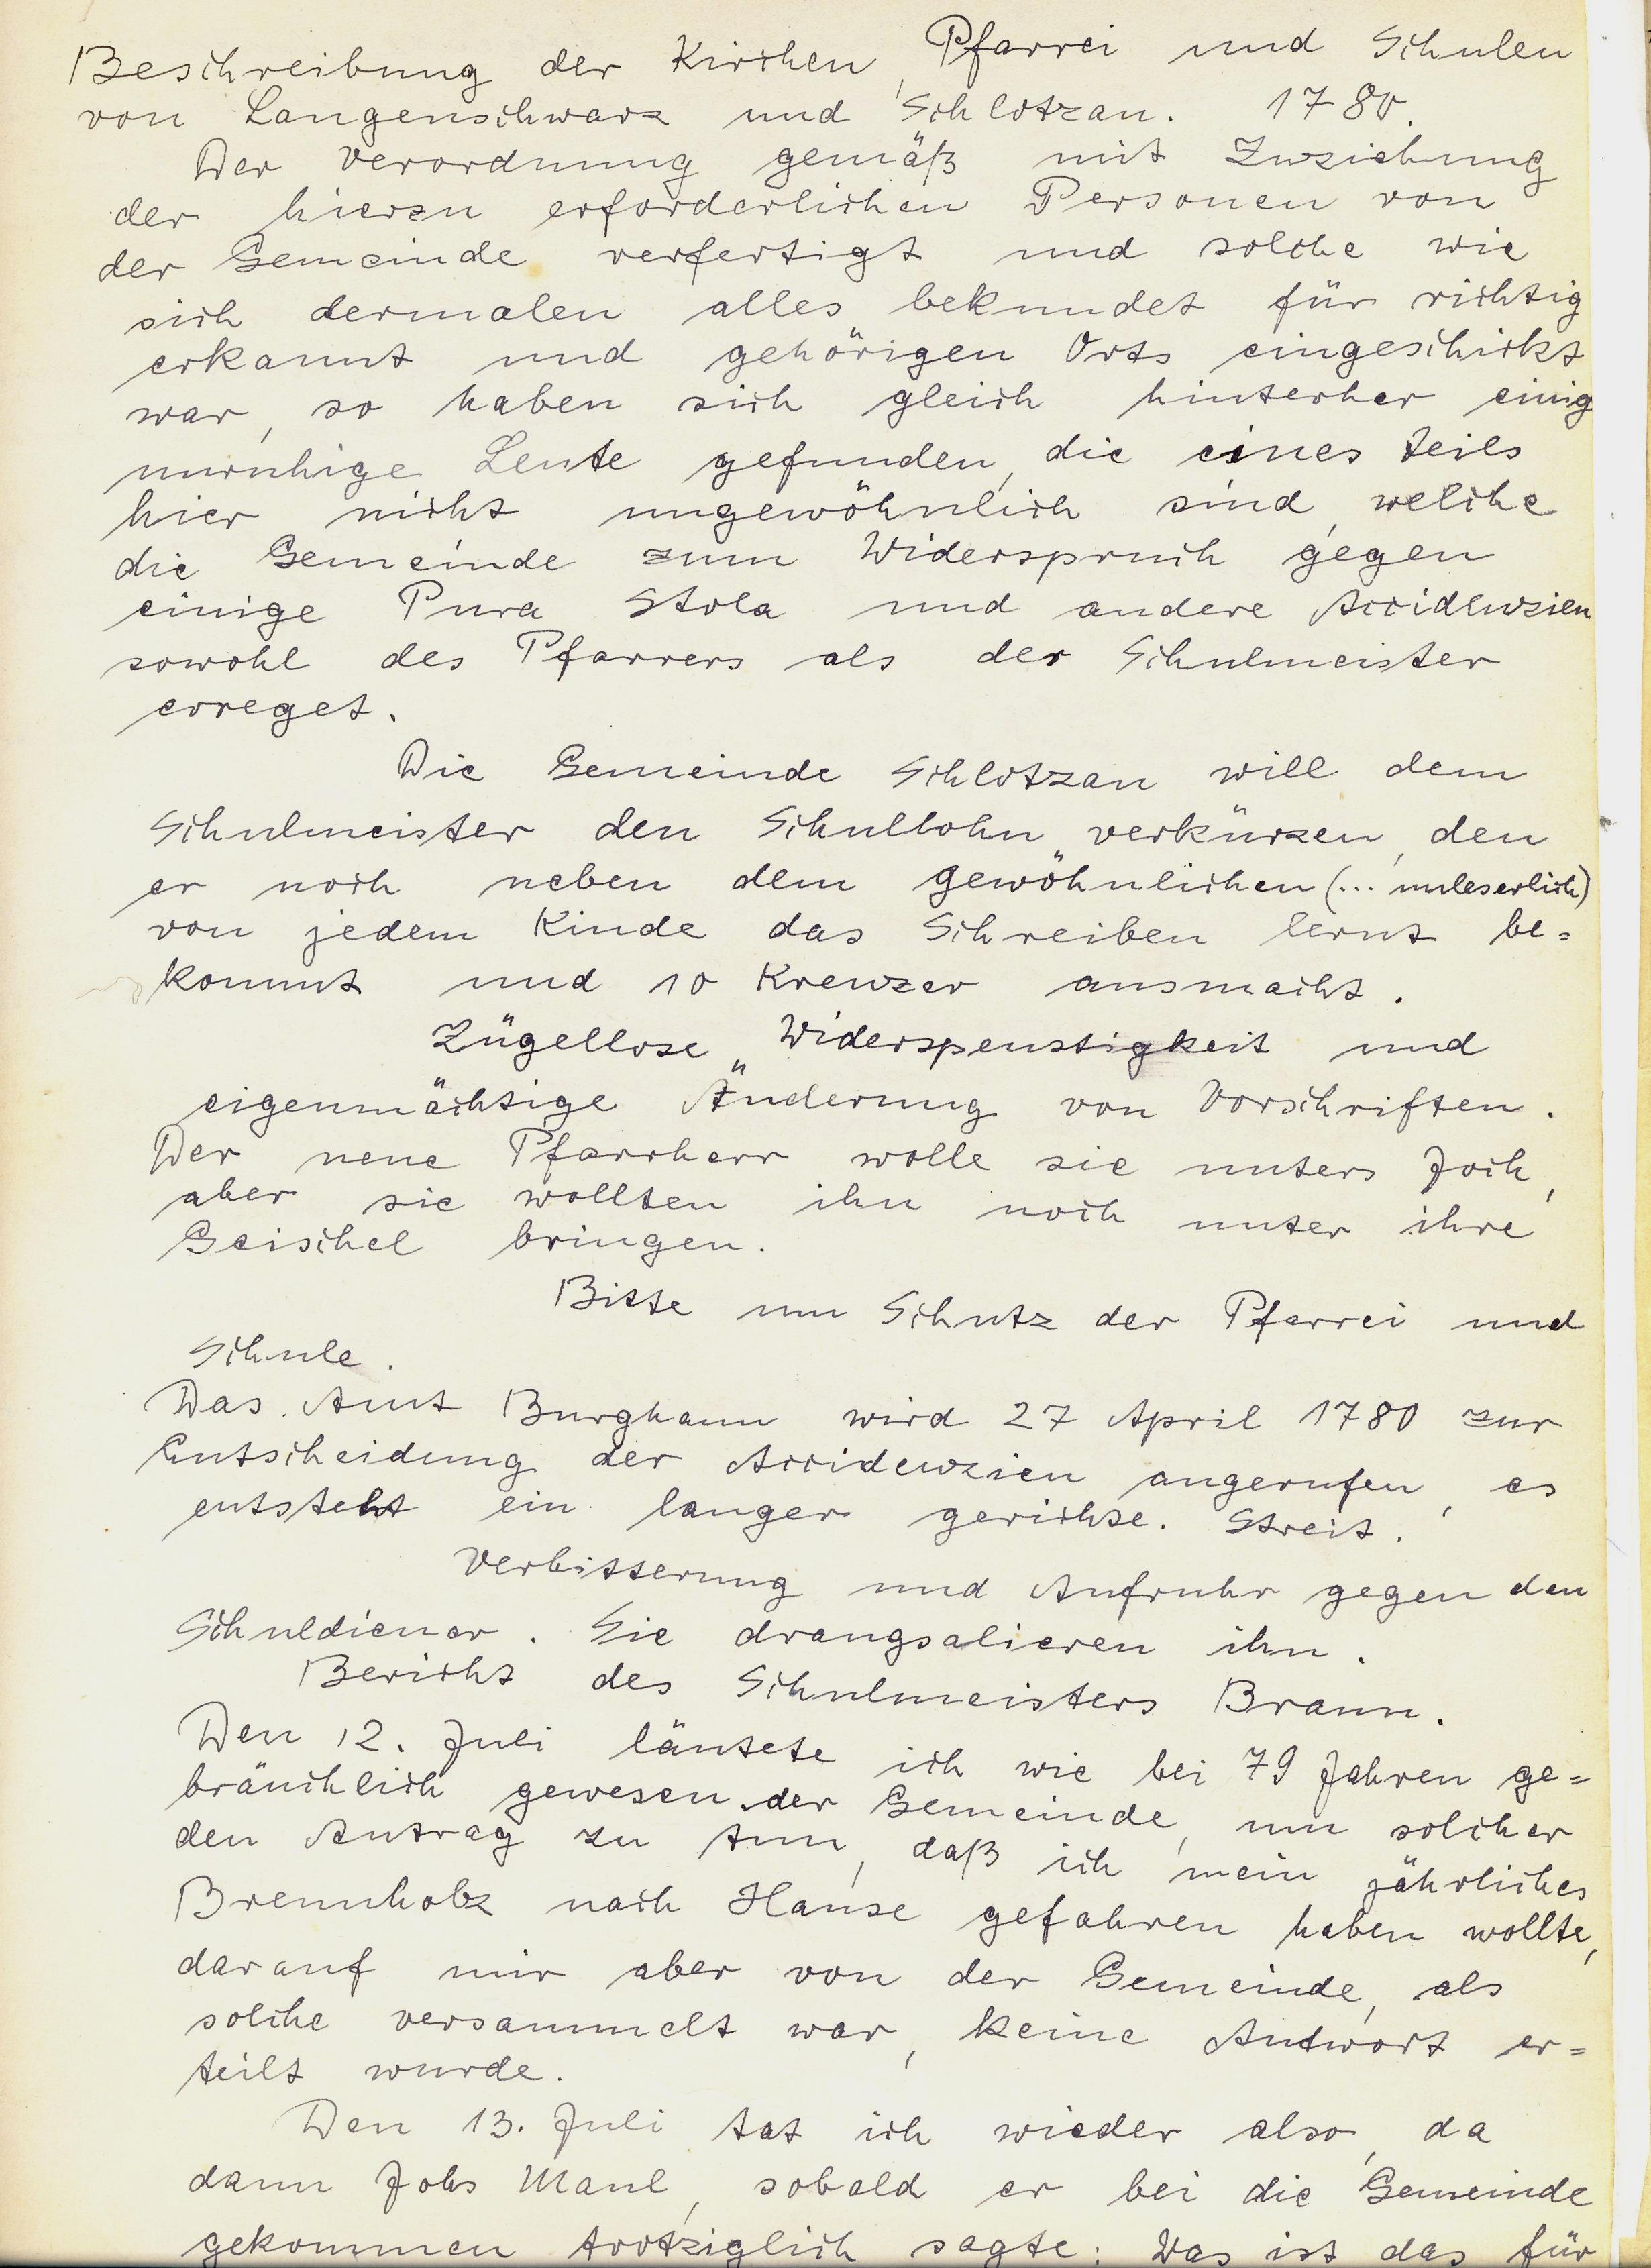 Beschreibung der Kirchen, Pfarrei und Schulen
von Langenschwarz und Schlotzau. 1780.
Der Verordnung gemäß mit Zuziehung
der hierzu erforderlichen Personen von
der Gemeinde verfertigt und solche wie
sich dermalen alles bekundet für richtig
erkannt und gehörigen Orts eingeschickt
war, so haben sich gleich hinterher einig
unruhige Leute gefunden, die eines teils
hier nicht ungewöhnlich sind, welche
die Gemeinde zum Widerspruch gegen
einige Pura Stola und andere Accidenzien
sowohl des Pfarrers als der Schulmeister
erreget.
Die Gemeinde Schlotzau will dem
Schulmeister den Schullohn verkürzen, den
er noch neben dem gewöhnlichen (... unleserlich)
von jedem Kinde das Schreiben lernt be=
kommt und 10 Kreuzer ausmacht.
Zügellose Widerspenstigkeit und
eigenmächtige Änderung von Vorschriften.
Der neue Pfarrherr wolle sie unters Joch,
aber sie wollten ihn noch unter ihre
Geischel bringen.
Bitte um Schutz der Pfarrei und
Schule.
Das Amt Burghaun wird 27 April 1780 zur
Entscheidung der Accidenzien angerufen, es
entsteht ein langer gerichte. Streit.
Verbitterung und Aufruhr gegen den
Schuldiener. Sie drangsalieren ihn.
Bericht des Schulmeisters Braun.
Den 12. Juli läutete ich wie bei 79 Jahren ge=
bräuchlich gewesen der Gemeinde, um solcher
den Antrag zu tun, daß ich mein jährliches
Brennholz nach Hause gefahren haben wollte,
darauf mir aber von der Gemeinde, als
solche versammelt war, keine Antwort er=
teilt wurde.
Den 13. Juli tat ich wieder also, da
dann Johs Maul, sobald er bei die Gemeinde
gekommen trotziglich sagte: Was ist das für